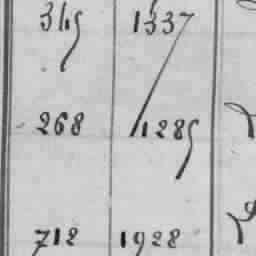 345 1337
268 1285
712 1928